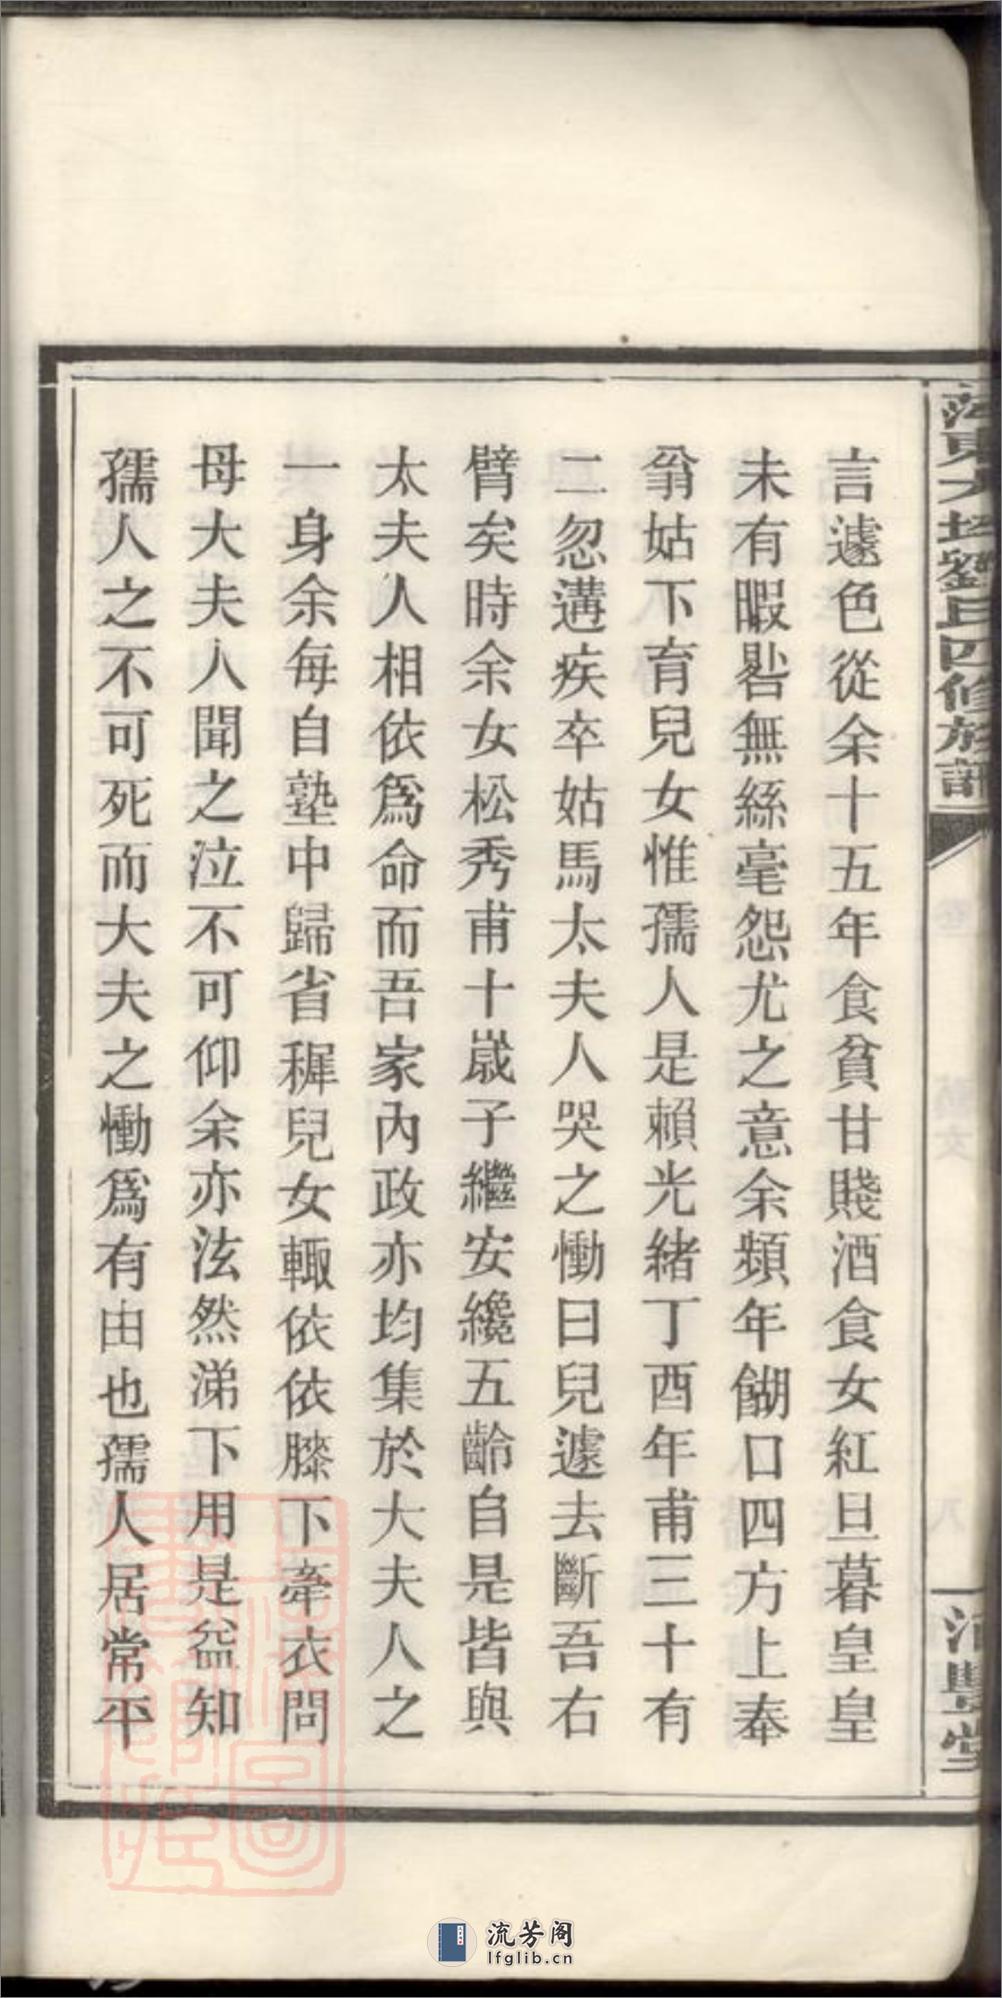 言遽色從余十五年食貧甘賤酒食女紅旦暮皇皇
未有暇晷無絲毫怨尤之意余頻年餬口四方上奉
翁姑下育兒女惟孺人是賴光緒丁酉年甫三十有
二忽遘疾卒姑馬太夫人哭之慟曰兒遽去斷吾右
臂矣時余女松秀甫十歲子繼安纔五齡自是皆與
太夫人相依爲命而吾家內政亦均集於大夫人之
一身余每自塾中歸省穉兒女輙依依膝下牽衣問
母大夫人聞之泣不可仰余亦泫然涕下用是益知
孺人之不可死而大夫之慟爲有由也孺人居常平
劉氏四修族譜
豐堂
流芳阁
lfglib.cn